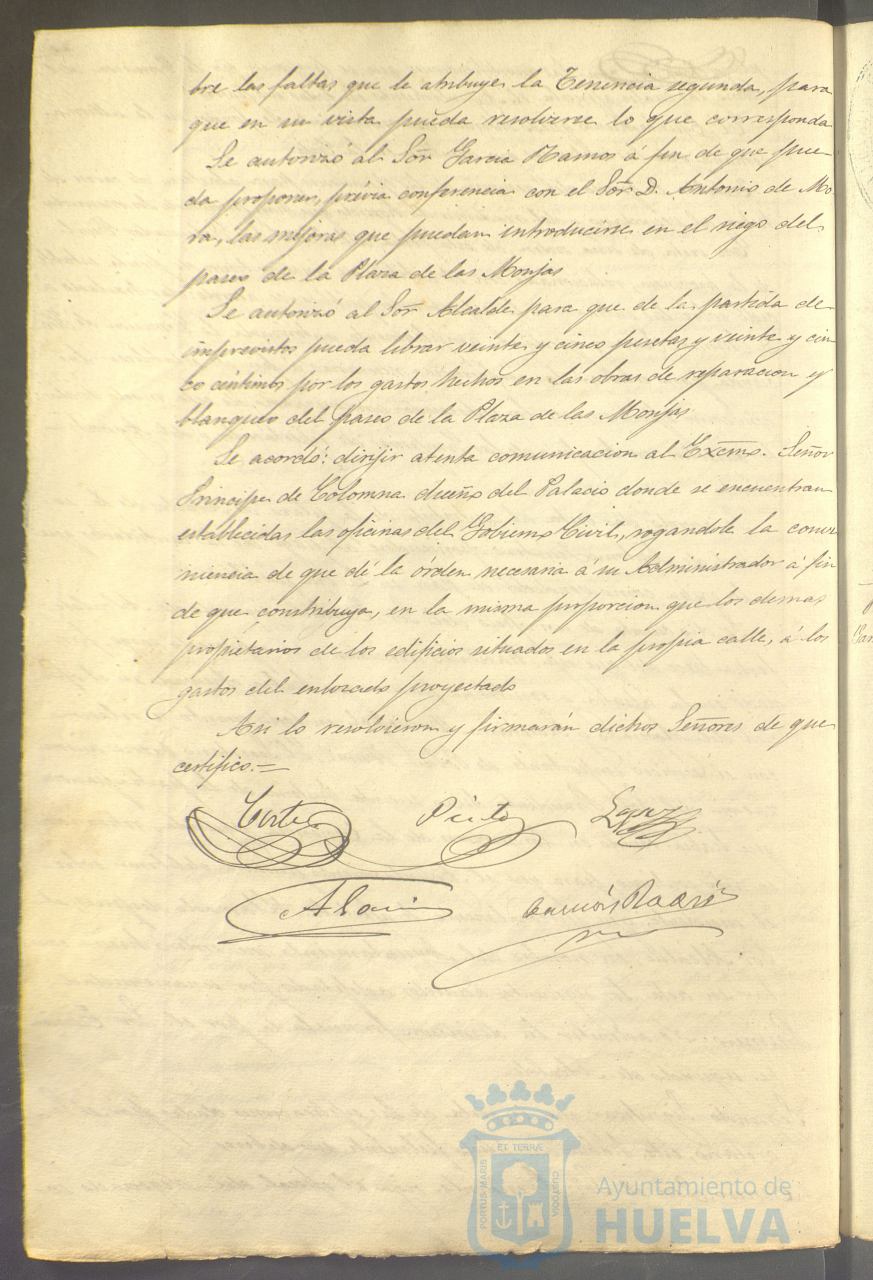 bre las faltas que le atribuye la Tenencia segunda, para
que en su vista pueda resolverse lo que corresponda
Se autorizó al Sor. Garcia Ramos á fin de que pue-
da proponer, prévia conferencia con el Sor. D. Antonio de Mo-
ra, las mejoras que puedan introducirse en el riego del
paseo de la Plaza de las Monjas
Se autorizó al Sor. Alcalde para que de la partida de
imprevistos pueda librar veinte y cinco pesetas y veinte y cin-
co céntimos por los gastos hechos en las obras de reparacion y
blanqueo del paseo de la Plaza de las Monjas
Se acordó: dirijir atenta comunicacion al Excmo. Señor
Principe de Colomna dueño del Palacio donde se encuentran
establecidas las oficinas del Gobierno Civil, rogandole la conve-
niencia de que dé la órden necesaria á su Administrador á fin
de que constribuya, en la misma proporcion que los demas
propietarios de los edificios situados en la propia calle, á los
gastos del enlozado proyectado
Asi lo resolvieron y firmarán dichos Señores de que
certifico.=
Cortes Prieto
A
PORTUS MARIS ET TERRÆ CUSTODIA
Ayuntamiento de
HUELVA